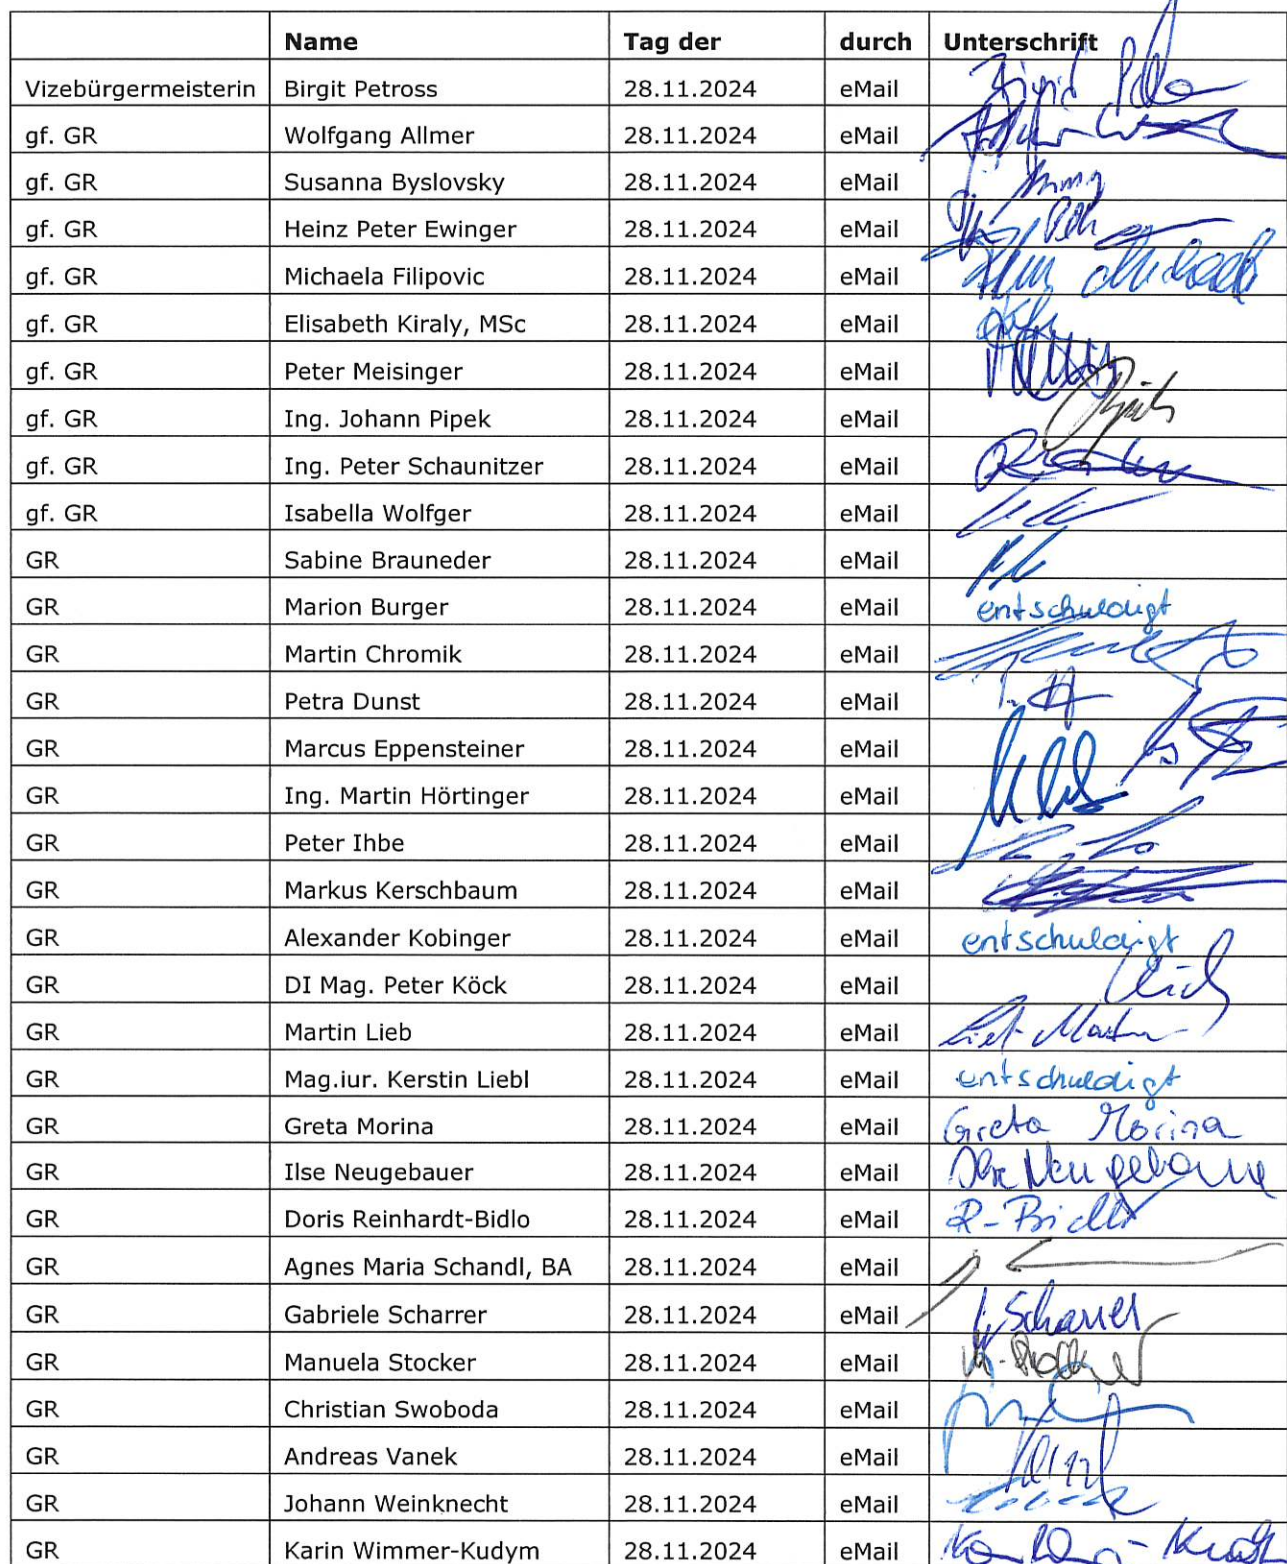 Name Tag der durch Unterschrift
Vizebürgermeisterin Birgit Petross 28.11.2024 eMail
gf. GR Wolfgang Allmer 28.11.2024 eMail
gf. GR Susanna Byslovsky 28.11.2024 eMail
gf. GR Heinz Peter Ewinger 28.11.2024 eMail
gf. GR Michaela Filipovic 28.11.2024 eMail
gf. GR Elisabeth Kiraly, MSc 28.11.2024 eMail
gf. GR Peter Meisinger 28.11.2024 eMail
gf. GR Ing. Johann Pipek 28.11.2024 eMail
gf. GR Ing. Peter Schaunitzer 28.11.2024 eMail
gf. GR Isabella Wolfger 28.11.2024 eMail
GR Sabine Brauneder 28.11.2024 eMail
GR Marion Burger 28.11.2024 eMail entschuldigt
GR Martin Chromik 28.11.2024 eMail
GR Petra Dunst 28.11.2024 eMail
GR Marcus Eppensteiner 28.11.2024 eMail
GR Ing. Martin Hörtinger 28.11.2024 eMail
GR Peter Ihbe 28.11.2024 eMail
GR Markus Kerschbaum 28.11.2024 eMail
GR Alexander Kobinger 28.11.2024 eMail entschuldigt
GR DI Mag. Peter Köck 28.11.2024 eMail
GR Martin Lieb 28.11.2024 eMail Lieb Martin
GR Mag.iur. Kerstin Liebl 28.11.2024 eMail entschuldigt
GR Greta Morina 28.11.2024 eMail Greta Morina
GR Ilse Neugebauer 28.11.2024 eMail Ilse Neugebauer
GR Doris Reinhardt-Bidlo 28.11.2024 eMail R-Bidlo
GR Agnes Maria Schandl, BA 28.11.2024 eMail
GR Gabriele Scharrer 28.11.2024 eMail Scharrer
GR Manuela Stocker 28.11.2024 eMail
GR Christian Swoboda 28.11.2024 eMail
GR Andreas Vanek 28.11.2024 eMail
GR Johann Weinknecht 28.11.2024 eMail
GR Karin Wimmer-Kudym 28.11.2024 eMail